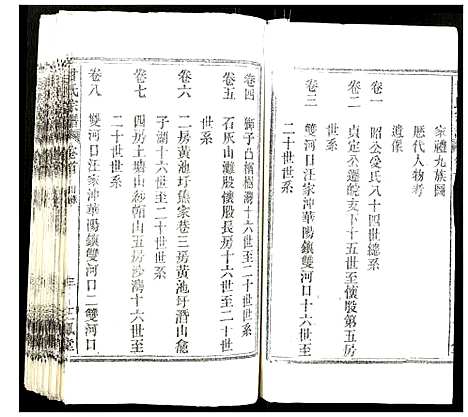 家禮九族圖
歷代人物考
遺像
卷一 昭公受氏八十四世總系
卷二 貞定公遷皖支下十五世至懷股第五房
世系
卷三 雙河口汪家沖華陽鎮雙河口十六世至
二十世世系
卷四 獅子凸楂樹灣十六世至二十世世系
卷五 石灰山灘股懷股長房十六世至二十世
世系
卷六 二房黃池圩焦家巷三房黃池圩酒山
子湖十六世至二十世世系
卷七 四房上塘山紗帽山五房沙灣十六世至
二十世世系
卷八 雙河口汪家沖華陽鎮雙河口二雙河口
氏宗譜